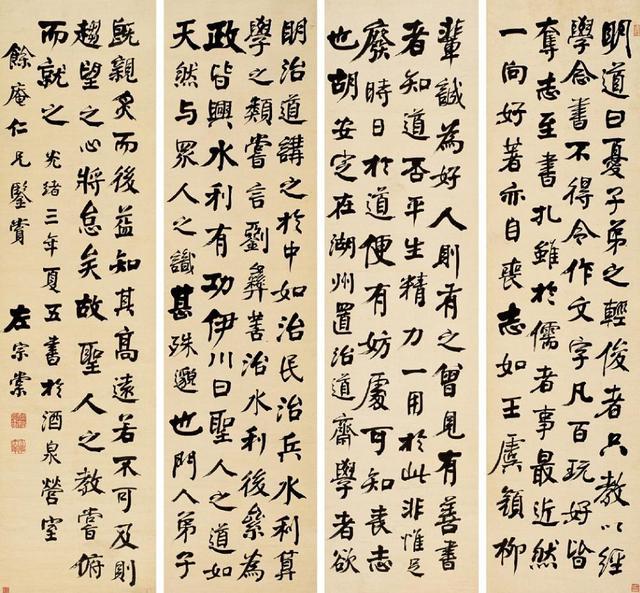 明道曰憂子弟之輕俊者只教以經
學念書不得令作文字凡百玩好皆
奪志至書扎雖於儒者事最近然
一向好著亦自喪志如王虞顏柳
輩誠為好人則有之曾見有善書
者知道否平生精力一用於此非惟足
廢時日於道便有妨處可知喪志
也胡安定在湖州置治道齋學者欲
明治道講之於中如治民治兵水利算
學之類嘗言劉彝善治水利後累為
政皆興水利有功伊川曰聖人之道如
天然与眾人之識甚殊邈也門人弟子
既親炙而後益知其高遠若不可及則
趨望之心將怠矣故聖人之教嘗俯
而就之 光緒三年夏五書於酒泉營室
餘庵仁兄鑒賞 左宗棠